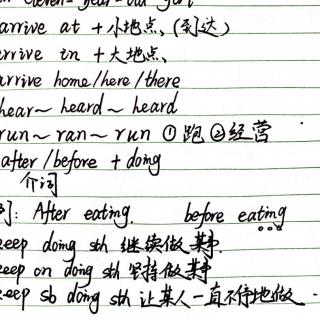 eleven-year-old girl
arrive at + 小地点、(到达)
arrive in + 大地点、
arrive home/here/there
hear~ heard~ heard
run~ ran~ run ①跑 ②经营
after/before + doing
介词
例: After eating. before eating
keep doing sth 继续做某事.
keep on doing sth 坚持做某事
keep sb doing sth 让某人一直不停地做.